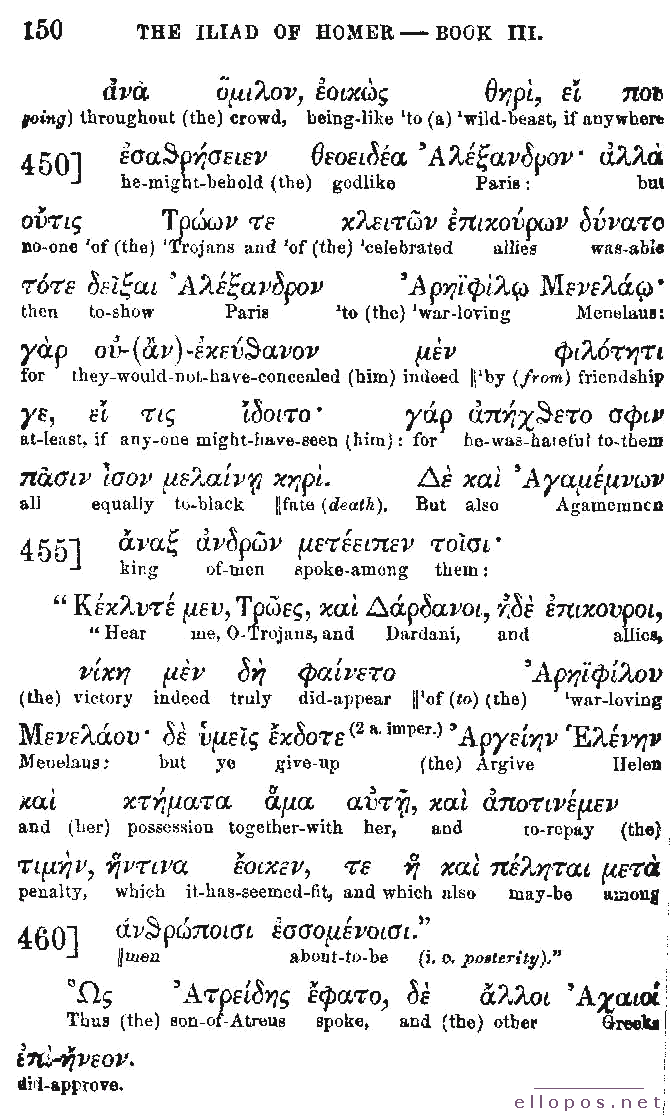 150 THE ILIAD OF HOMER — BOOK III.
ἀνὰ ὅμιλον, ἐοικὼς θηρὶ, εἴ που
going) throughout (the) crowd, being-like 'to (a) 'wild-beast, if anywhere
450] ἐσαϑρήσειεν θεοειδέα Ἀλέξανδρον· ἀλλὰ
he-might-behold (the) godlike Paris: but
οὔτις Τρώων τε κλειτῶν ἐπικούρων δύνατο
no-one 'of (the) 'Trojans and 'of (the) 'celebrated allies was-able
τότε δεῖξαι Ἀλέξανδρον Ἀρηϊφίλῳ Μενελάῳ·
then to-show Paris 'to (the) 'war-loving Menelaus:
γὰρ οὐ-(ἂν)-ἐκεύϑανον μὲν φιλότητι
for they-would-not-have-concealed (him) indeed ‖'by (from) friendship
γε, εἴ τις ἴδοιτο· γάρ ἀπήχϑετο σφιν
at-least, if any-one might-have-seen (him): for he-was-hateful to-them
πᾶσιν ἶσον μελαίνῃ κηρὶ. Δὲ καὶ Ἀγαμέμνων
all equally to-black ‖fate (death). But also Agamemnon
455] ἄναξ ἀνδρῶν μετέειπεν τοῖσι·
king of-men spoke-among them:
“Κέκλυτέ μευ, Τρῶες, καὶ Δάρδανοι, ἠδὲ ἐπικουροι,
“Hear me, O-Trojans, and Dardani, and allies,
νίκη μὲν δὴ φαίνετο Ἀρηϊφίλου
(the) victory indeed truly did-appear ‖'of (to) (the) 'war-loving
Μενελάου· δὲ ὑμεῖς ἔκδοτε (2 a. imper.) Ἀργείην Ἑλένην
Menelaus: but ye give-up (the) Argive Helen
καὶ κτήματα ἅμα αὐτῇ, καὶ ἀποτινέμεν
and (her) possession together-with her, and to-repay (the)
τιμὴν, ἥντινα ἔοικεν, τε ἥ καὶ πέληται μετὰ
penalty, which it-has-seemed-fit, and which also may-be among
460] ἀνϑρώποισι ἐσσομένοισι.”
‖men about-to-be (i. e. posterity).”
Ὣς Ἀτρείδης ἔφατο, δὲ ἄλλοι Ἀχαιοὶ
Thus (the) son-of-Atreus spoke, and (the) other Greeks
ἐπι-ήνεον.
did-approve.
ellopos.net